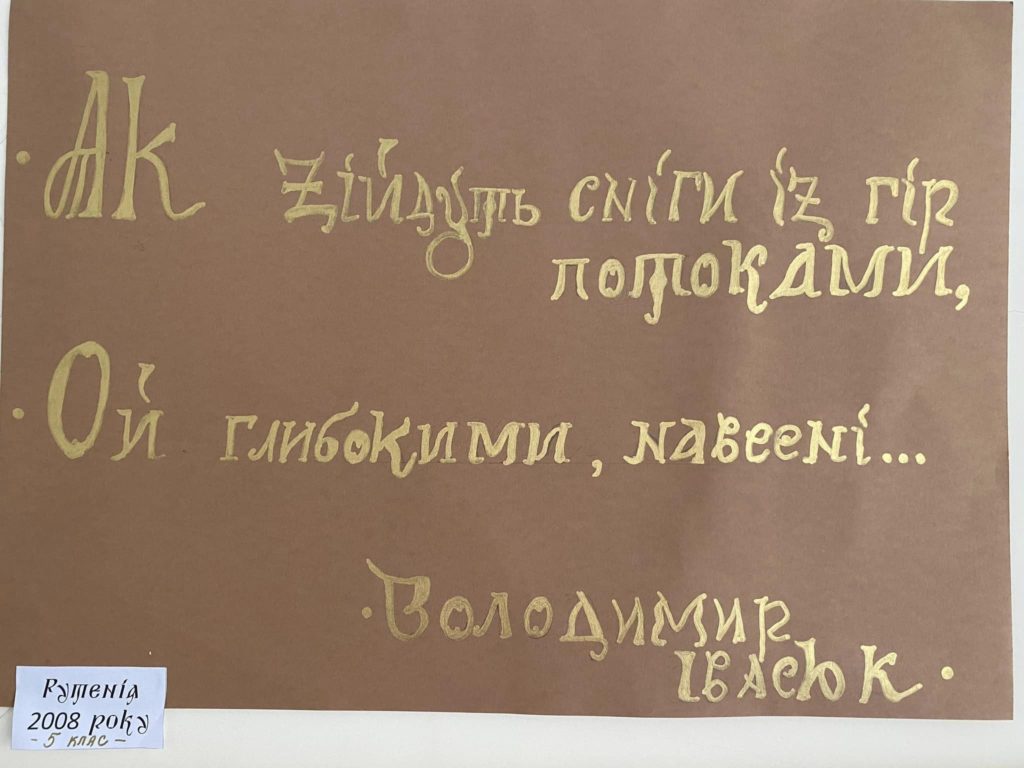 Як зійдуть сніги із гір
потоками,
Ой глибокими, навеені...
Володимир
Івасюк
Рутенія
2008 року
- 5 клас -